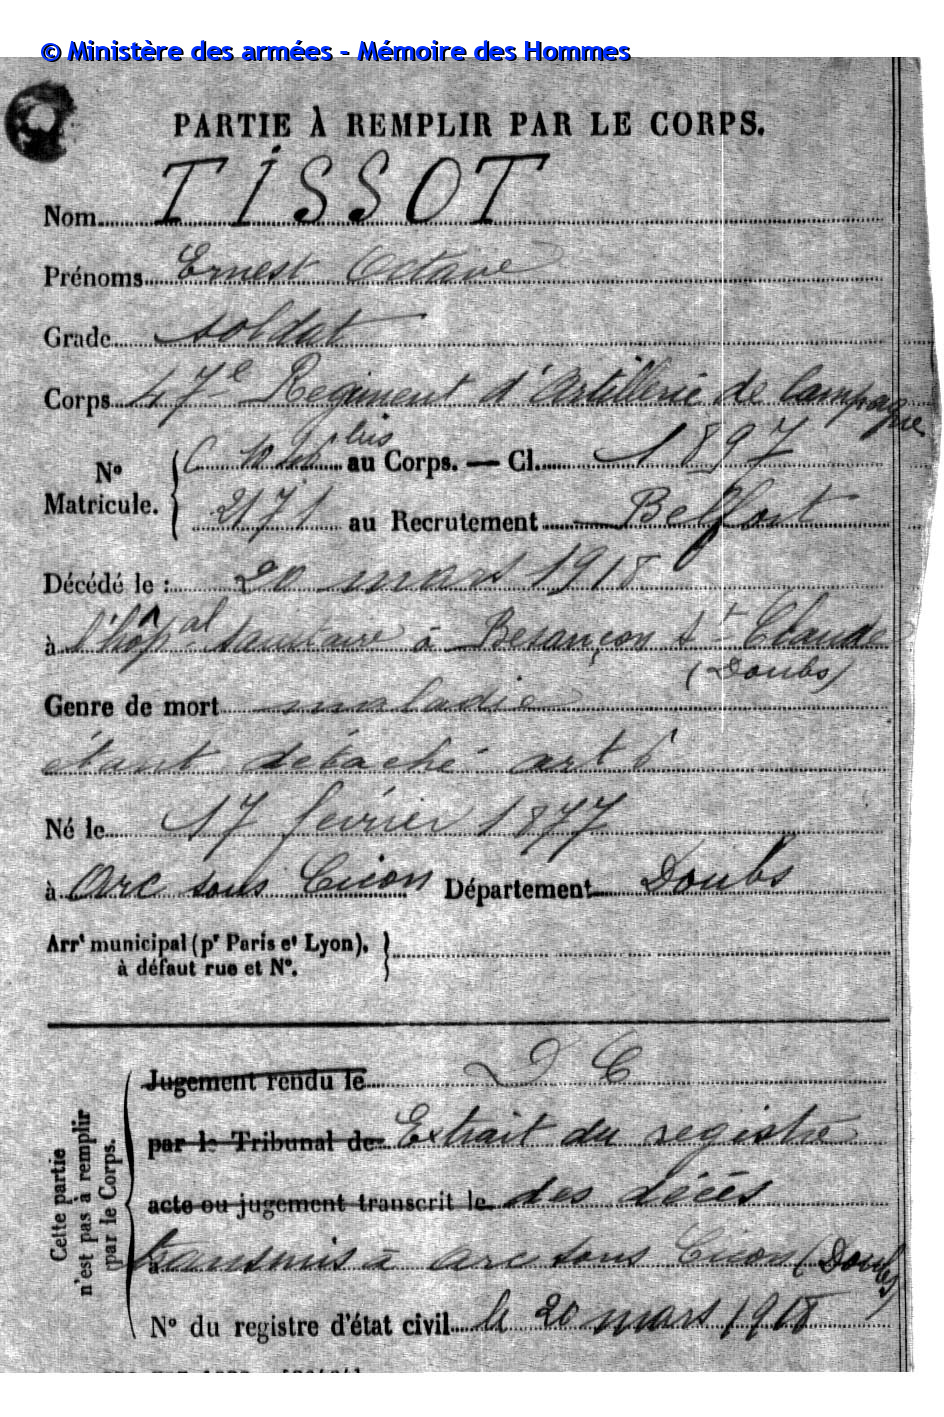 © Ministère des armées - Mémoire des Hommes
PARTIE À REMPLIR PAR LE CORPS.
Nom TISSOT
Prénoms Ernest Octave
Grade soldat
Corps 47e Régiment d'Artillerie de Campagne
No Matricule. { C bis au Corps. — Cl. 1897
2171 au Recrutement Belfort
Décédé le : 20 mars 1918
à l'hôpal sanitaire à Besançon St Claude
(Doubs)
Genre de mort maladie
étant détaché
Né le 17 février 1877
à Arc sous Cicon Département Doubs
Arrt municipal (pr Paris et Lyon), à défaut rue et No. }
Cette partie n'est pas à remplir par le Corps.
Jugement rendu le D C
par le Tribunal de Extrait du registre
acte ou jugement transcrit le des décès
à transmis à Arc sous Cicon (Doubs)
No du registre d'état civil le 20 mars 1918